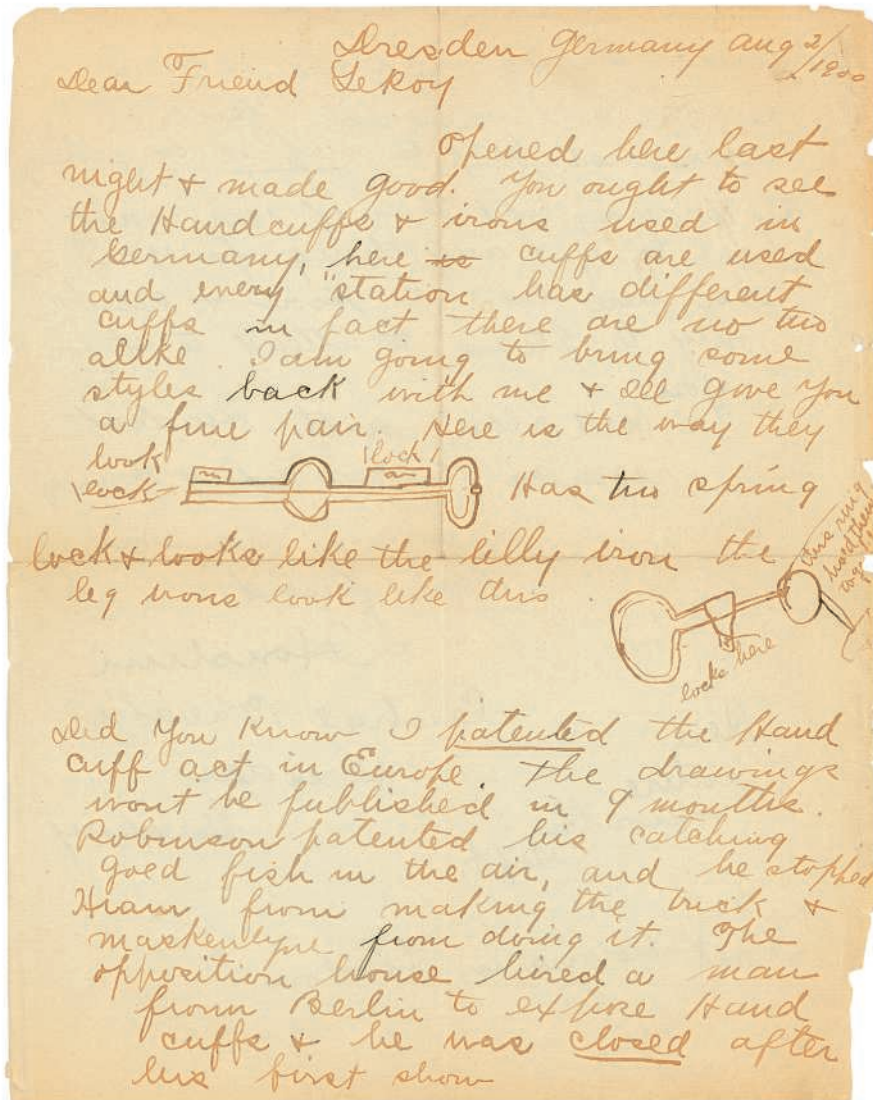 Dresden Germany Aug 2/1900
Dear Friend LeRoy
opened here last
night & made good. You ought to see
the Handcuffs & irons used in
Germany, here is cuffs are used
and every "station has different
cuffs in fact there are no two
alike. I am going to bring some
styles back with me & Ill give you
a fine pair. Here is the way they
look
lock
lock
Has two spring
lock & looks like the lilly iron the
leg irons look like this.
this ring
hold them
locks here
Did You Know I patented the Hand
cuff act in Europe. The drawings
wont be published in 9 months.
Robinson patented his catching
goed fish in the air, and he stopped
Hiam from making the trick &
maskenlyne from doing it. The
opposition house hired a man
from Berlin to expose Hand
cuffs & he was closed after
his first show